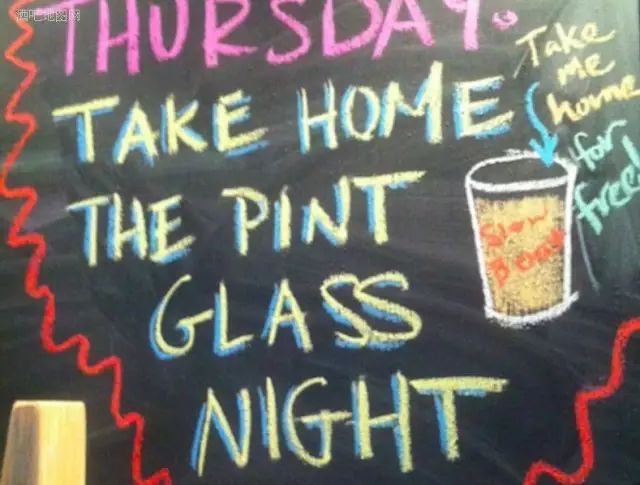 酒吧地图网
THURSDAY.
TAKE HOME
THE PINT
GLASS
NIGHT
Take
me
home
for
free!
Slow